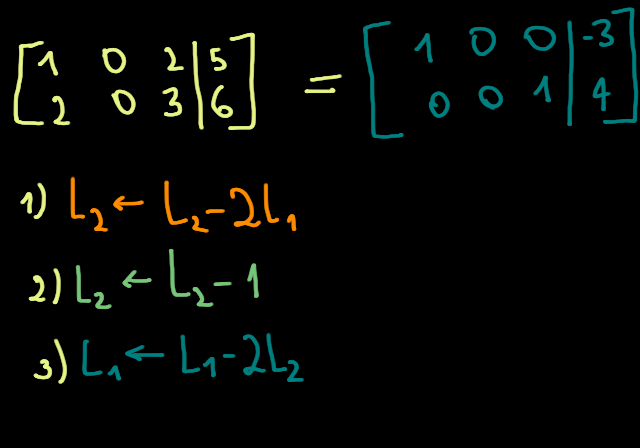 [1 0 2 | 5] = [1 0 0 | -3]
[2 0 3 | 6] [0 0 1 | 4]
1) L₂ ← L₂ - 2L₁
2) L₂ ← L₂ - 1
3) L₁ ← L₁ - 2L₂